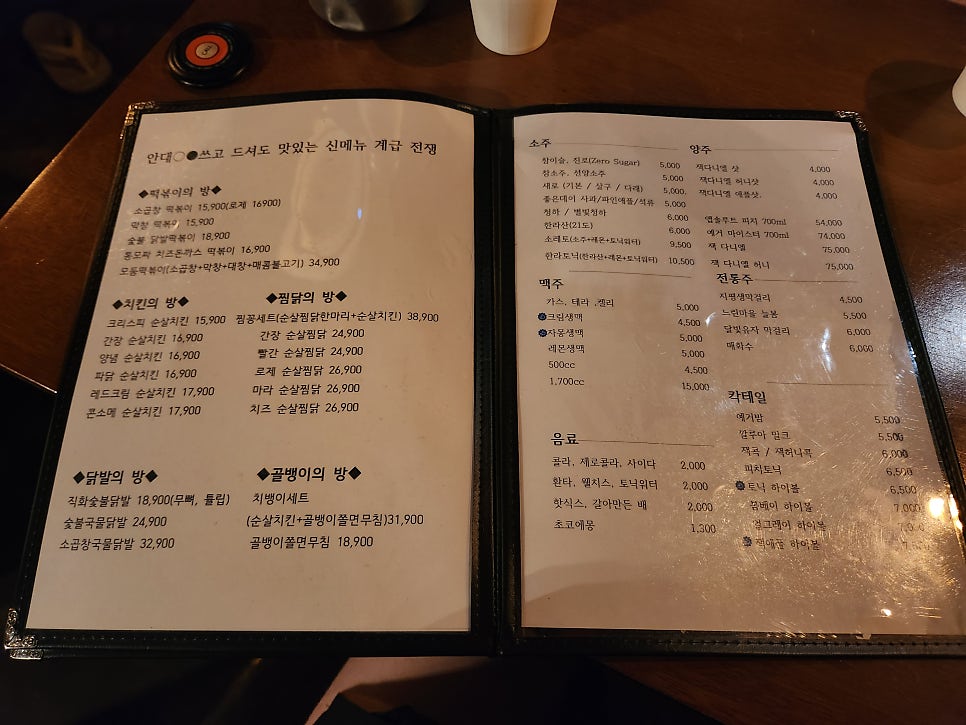 안대○●쓰고 드셔도 맛있는 신메뉴 계급 전쟁
◆떡볶이의 방◆
소곱창 떡볶이 15,900(로제 16900)
막창 떡볶이 15,900
숯불 닭발떡볶이 18,900
통모짜 치즈돈까스 떡볶이 16,900
모둠떡볶이(소곱창+막창+대창+매콤불고기) 34,900
◆치킨의 방◆
크리스피 순살치킨 15,900
간장 순살치킨 16,900
양념 순살치킨 16,900
파닭 순살치킨 16,900
레드크림 순살치킨 17,900
콘소메 순살치킨 17,900
◆찜닭의 방◆
찜꽁세트(순살찜닭한마리+순살치킨) 38,900
간장 순살찜닭 24,900
빨간 순살찜닭 24,900
로제 순살찜닭 26,900
마라 순살찜닭 26,900
치즈 순살찜닭 26,900
◆닭발의 방◆
직화숯불닭발 18,900(무뼈, 튤립)
숯불국물닭발 24,900
소곱창국물닭발 32,900
◆골뱅이의 방◆
치뱅이세트
(순살치킨+골뱅이쫄면무침)31,900
골뱅이쫄면무침 18,900
소주
참이슬, 진로(Zero Sugar) 5,000
참소주, 선양소주 5,000
새로 (기본 / 살구 / 다래) 5,000
좋은데이 사과/파인애플/석류 5,000
청하 / 별빛청하 6,000
한라산(21도) 6,000
소레토(소주+레몬+토닉워터) 9,500
한라토닉(한라산+레몬+토닉워터) 10,500
맥주
카스, 테라 ,켈리 5,000
크림생맥 4,500
자몽생맥 5,000
레몬생맥 5,000
500cc 4,500
1,700cc 15,000
음료
콜라, 제로콜라, 사이다 2,000
환타, 웰치스, 토닉워터 2,000
핫식스, 갈아만든 배 2,000
초코에몽 1,300
양주
잭다니엘 샷 4,000
잭다니엘 허니샷 4,000
잭다니엘 애플샷, 4,000
앱솔루트 피치 700ml 54,000
예거 마이스터 700ml 74,000
잭 다니엘 75,000
잭 다니엘 허니 75,000
전통주
지평생막걸리 4,500
느린마을 늘봄 5,500
달빛유자 막걸리 6,000
매화수 6,000
칵테일
예거밤 5,500
깔루아 밀크 5,500
잭콕 / 잭허니콕 6,000
피치토닉 6,500
토닉 하이볼 6,500
봄베이 하이볼 7,000
얼그레이 하이볼
잭애플 하이볼